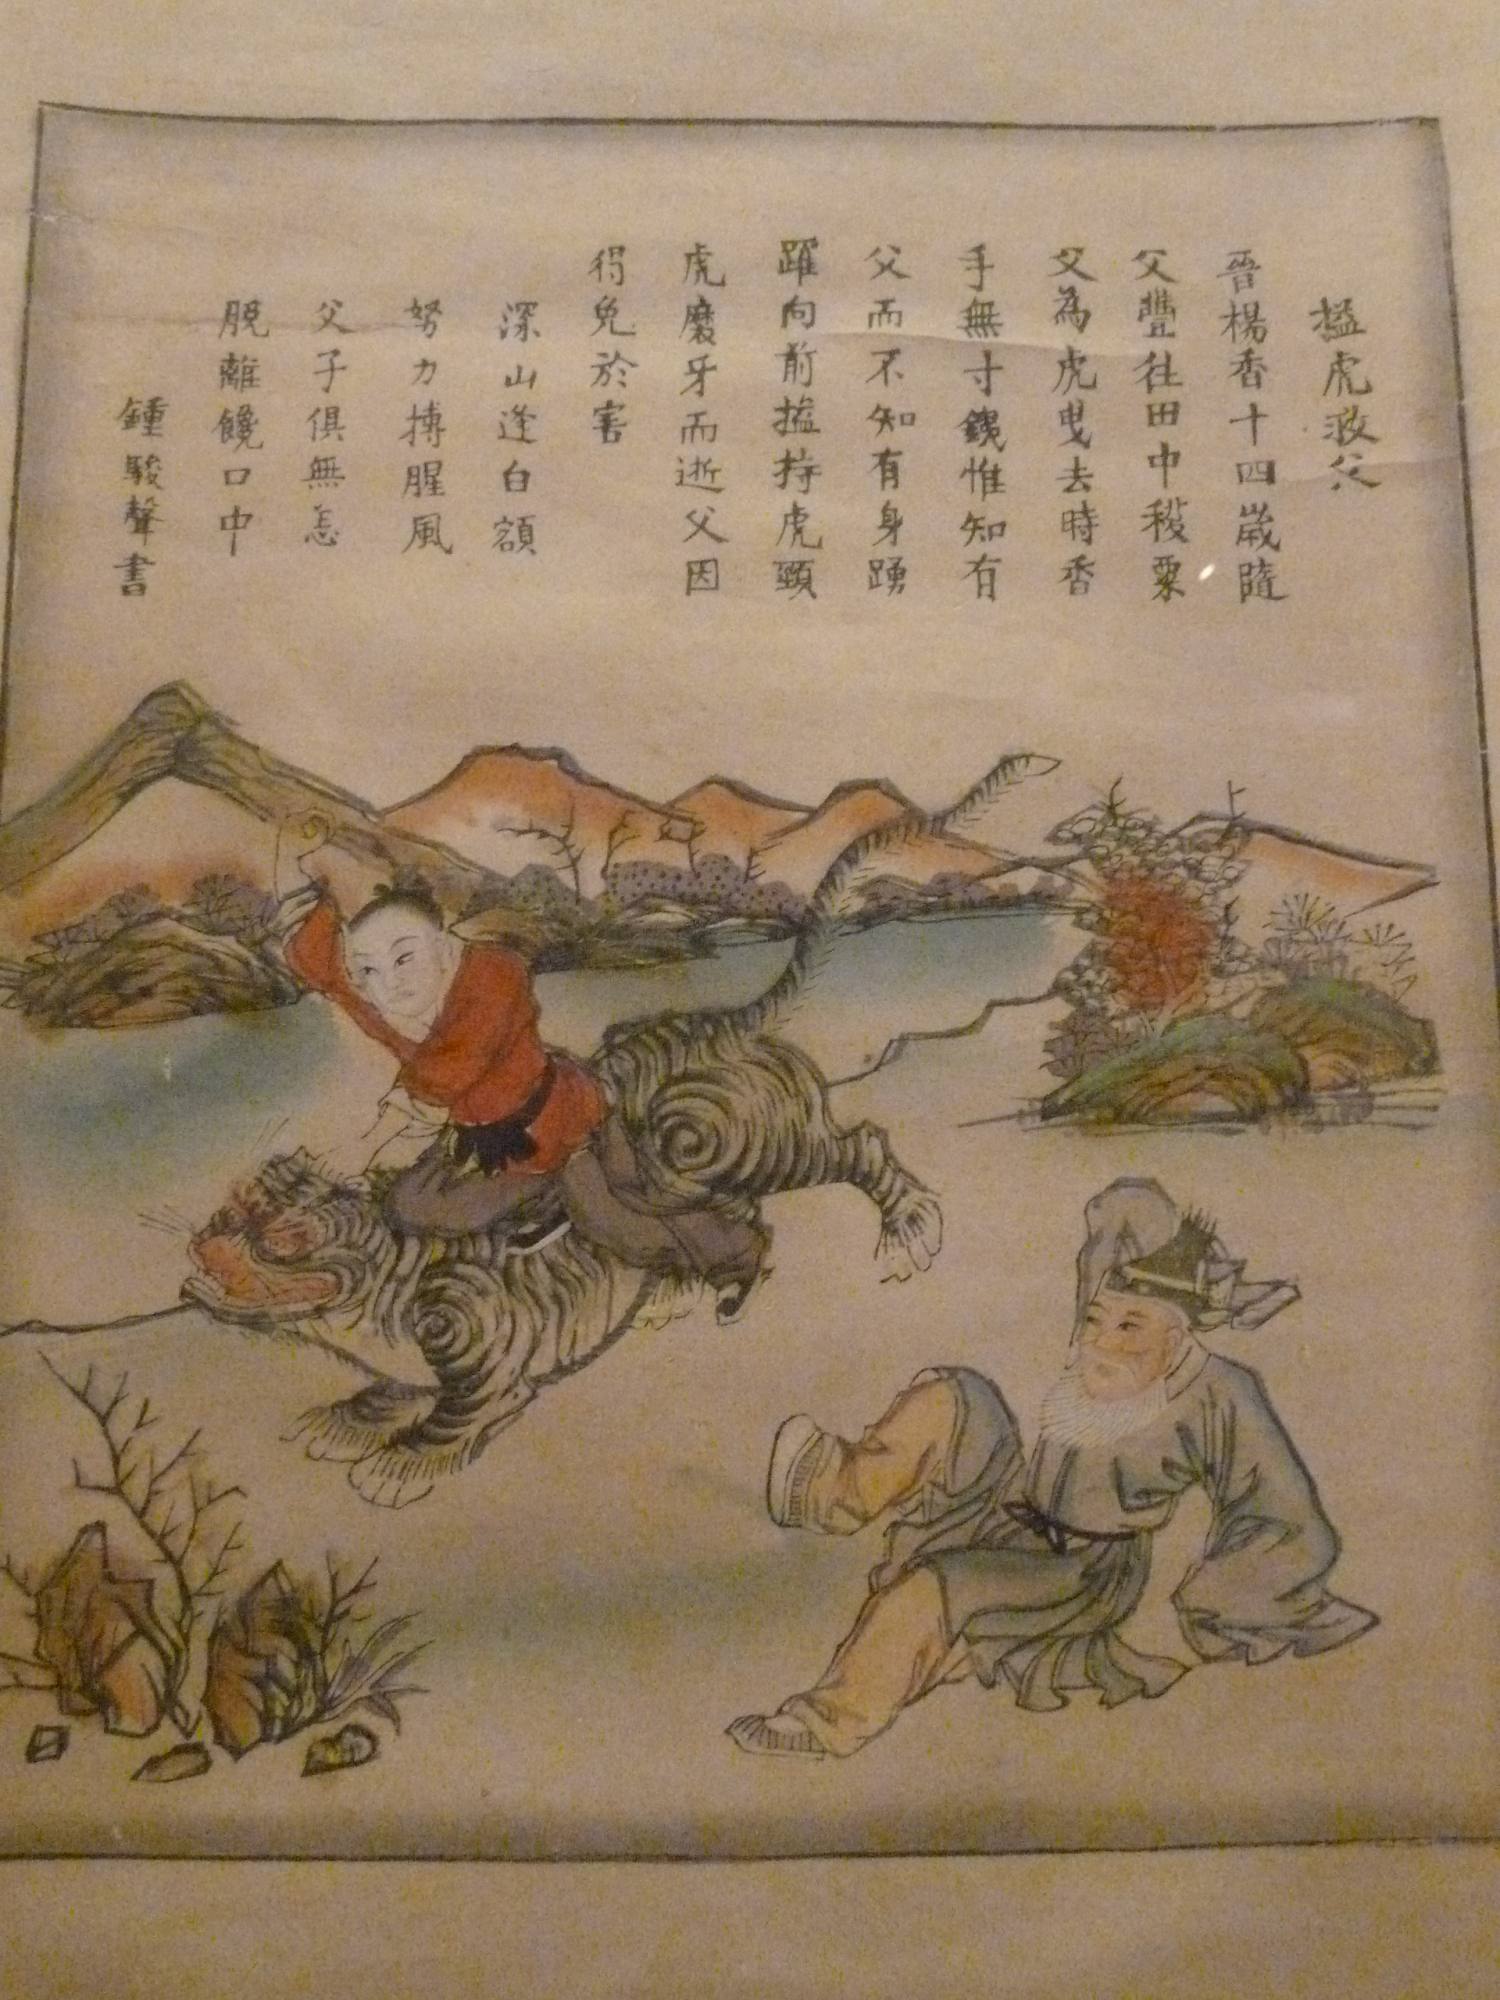 搤虎救父
晉楊香十四歲隨
父豐往田中穫粟
父為虎曳去時香
手無寸鐵惟知有
父而不知有身踴
躍向前搤持虎頸
虎磨牙而逝父因
得免於害
深山逢白額
努力搏腥風
父子俱無恙
脫離饞口中
鍾駿聲書